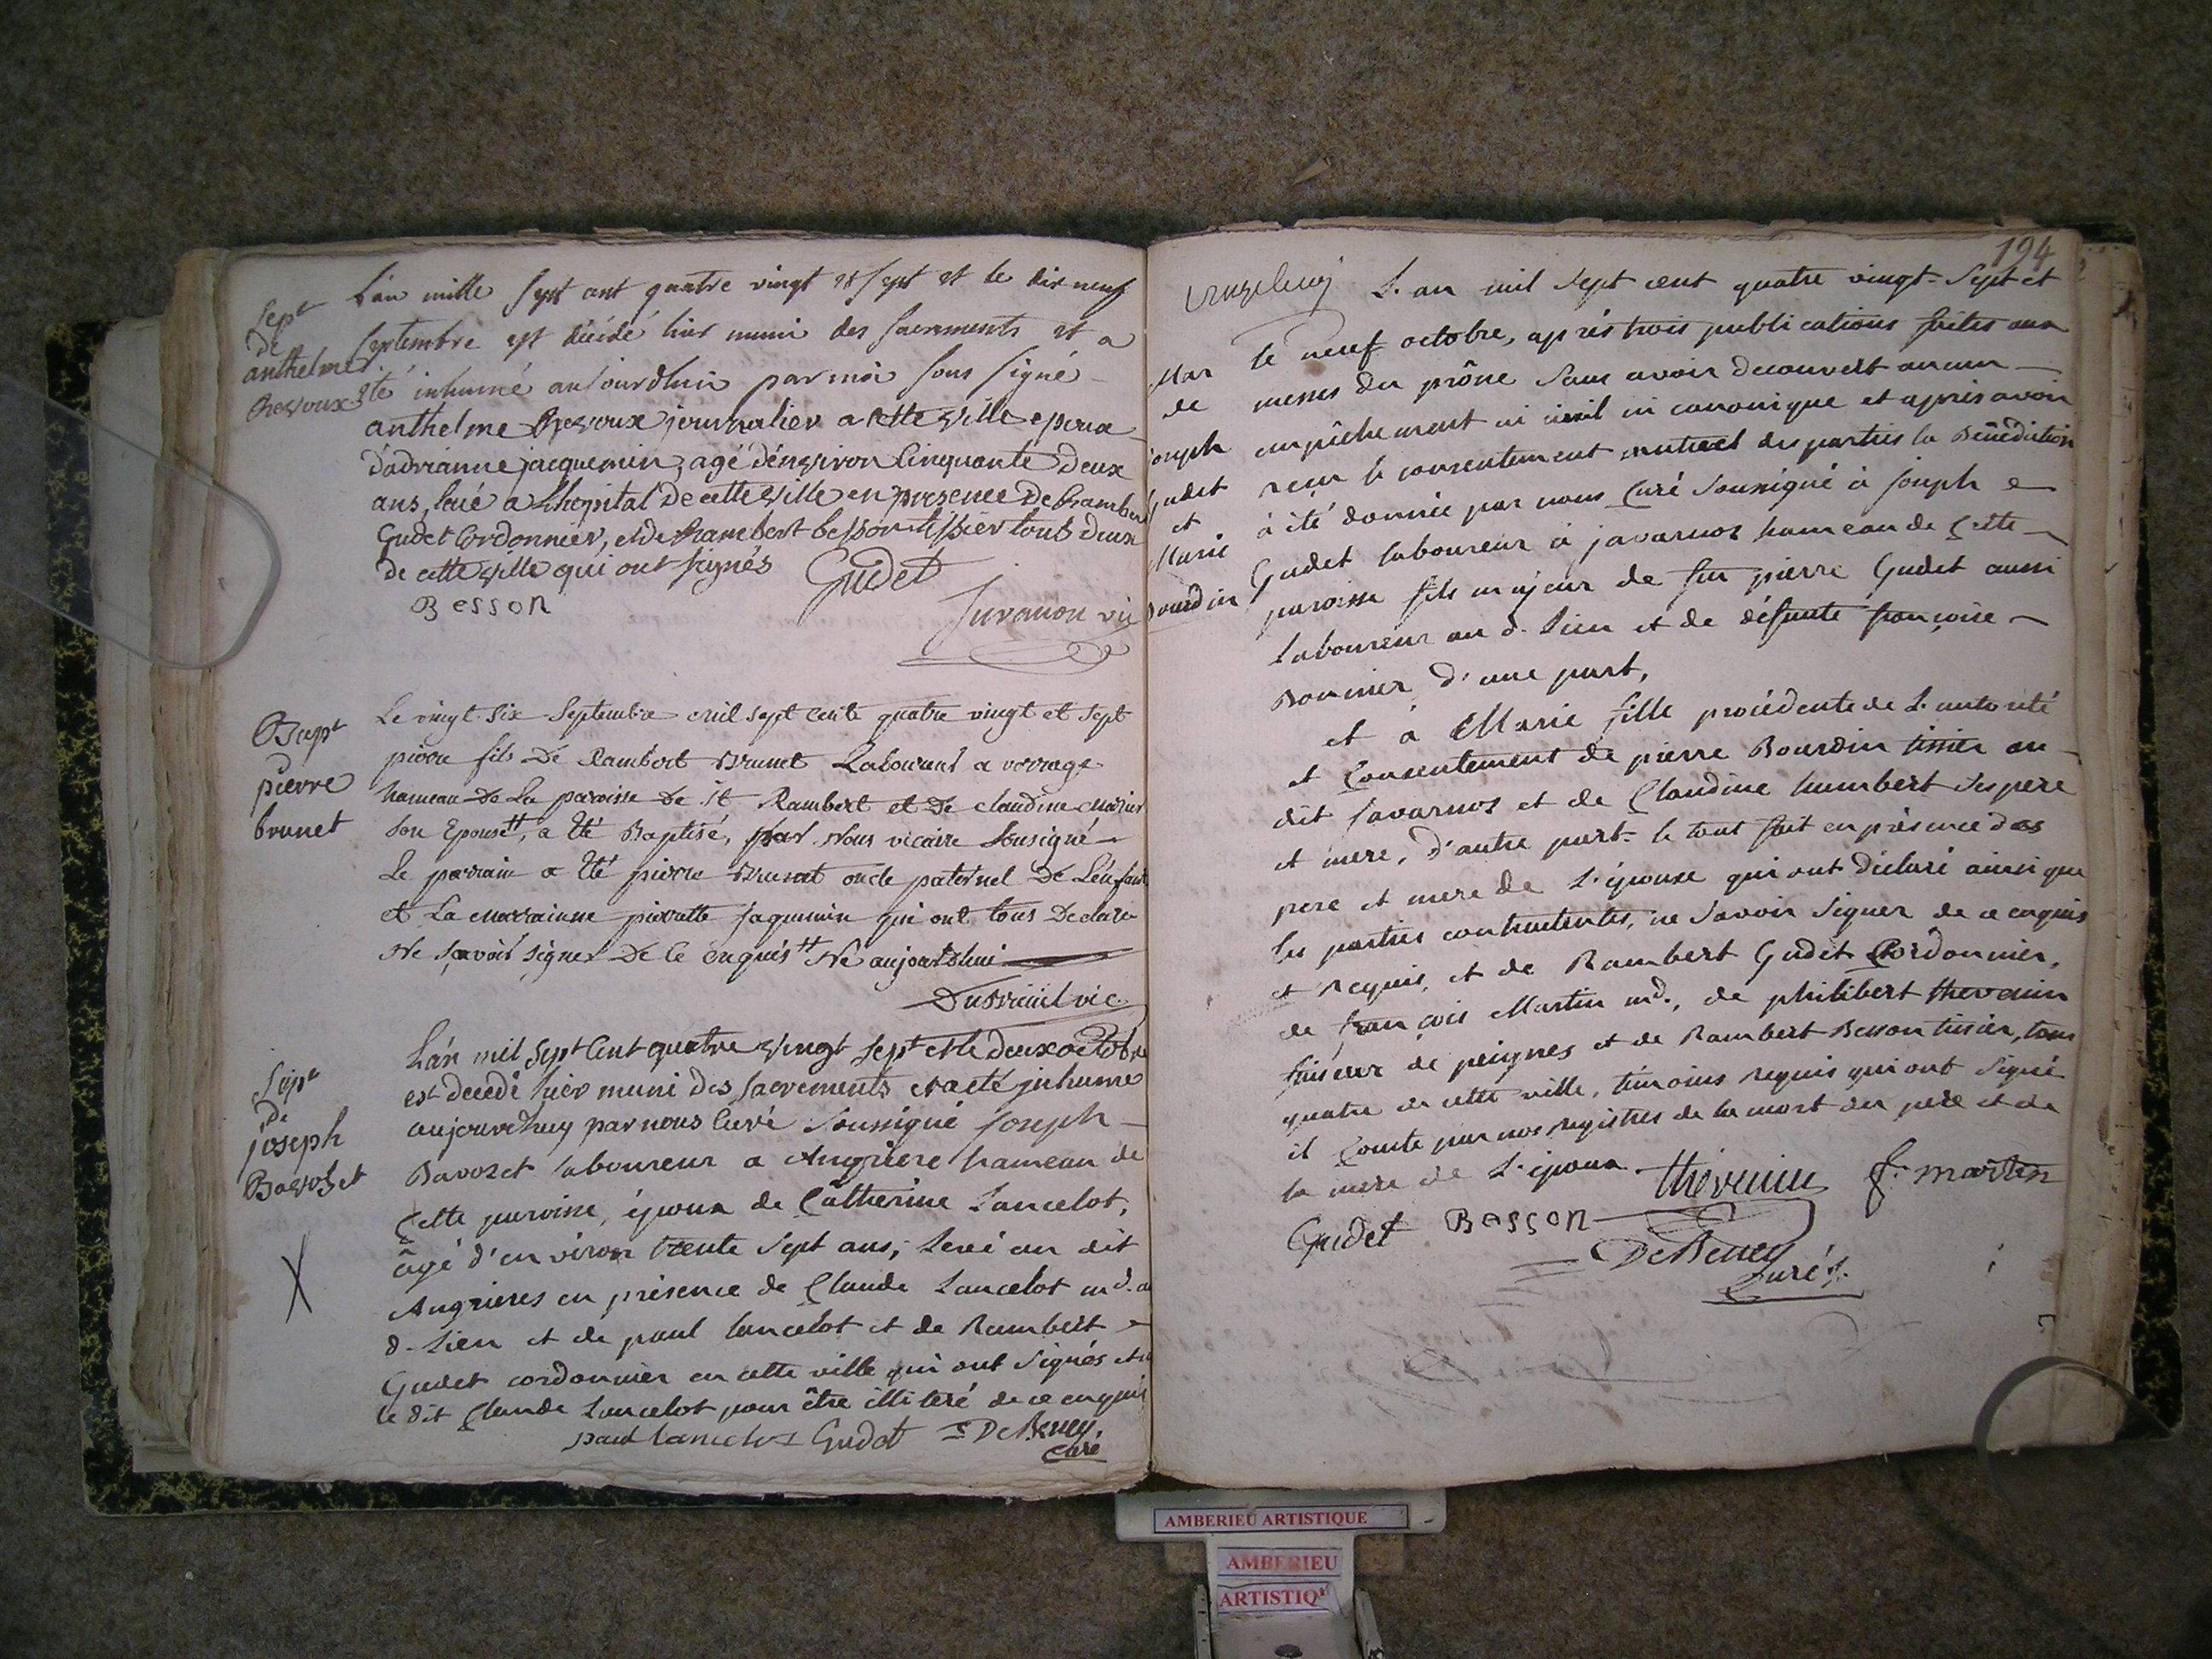 Sept
de
anthelme
Chesvoux
L'an mille sept cent quatre vingt et sept et le dix neuf
septembre est décédé hier muni des sacrements et a
été inhumé aujourdhui par moi sous signé
anthelme Chesvoux journalier a cette ville epoux
d'adrianne jacquemin, agé d'environ Cinquante deux
ans, levé a Lhopital de cette ville en presence de Rambert
Gudet Cordonnier, et de Rambert besson tissier tous deux
de cette ville qui ont signés Gudet
Besson
Juvanon vic
Bapt
pierre
brunet
Le vingt six Septembre mil sept cents quatre vingt et sept
pierre fils De Rambert Brunet Laboureur a vorrage
hameau De La paroisse De St Rambert et De claudine
son Epouse, a été Baptisé, par Nous vicaire Sousigné
Le parrain a été pierre Brunet oncle paternel De L'enfant
et La marrainne pierrette jaquemin qui ont tous Declaré
Ne sçavoir signer De Ce Enquis Né aujourdhui
vic
Sept
De
joseph
Bavozet
L'an mil sept Cent quatre vingt sept et le deux octobre
est decedé hier muni des sacrements et a eté inhumé
aujourdhuy par nous Curé Soussigné Joseph
Bavozet laboureur a Angriere hameau de
Cette paroisse, époux de Catherine Lancelot,
âgé d'environ trente sept ans; levé au dit
Angrieres en présence de Claude Lancelot md. au
d. Lieu et de paul lancelot et de Rambert
Gudet cordonnier en cette ville qui ont signés et non
le dit Claude Lancelot pour être illiteré de ce enquis
paul lancelot Gudet DeBeney
curé
194
Mar
de
joseph
gudet
et
Marie
Bourdin
L'an mil sept cent quatre vingt-sept et
le neuf octobre, aprés trois publications faites aux
messes du prône sans avoir decouvert aucun
empêchement ni civil ni canonique et après avoir
reçu le consentement mutuel des parties la Bénédiction
à été donnée par nous Curé Soussigné à joseph
Gudet laboureur à javarnoz hameau de Cette
paroisse fils majeur de feu pierre Gudet aussi
Laboureur au d. Lieu et de défunte françoise
Bonnier, d'une part,
et à Marie fille procédente de L'autorité
et Consentement de pierre Bourdin tissier au
dit Javarnoz et de Claudine humbert ses pere
et mere, d'autre part. le tout fait en présence des
pere et mere de L'épouse qui ont déclaré ainsi que
les parties contractentes, ne savoir signer de ce enquis
et Requis, et de Rambert Gudet Cordonnier,
de françois Martin md., de philibert thevenin
faiseur de peignes et de Rambert Besson tissier, tous
quatre de cette ville, témoins requis qui ont signé
il Conste par nos registres de la mort du pere et de
la mere de L'époux. thévenin f. martin
Gudet Besson
DeBeney
Curé
AMBERIEU ARTISTIQUE
AMBERIEU
ARTISTIQ